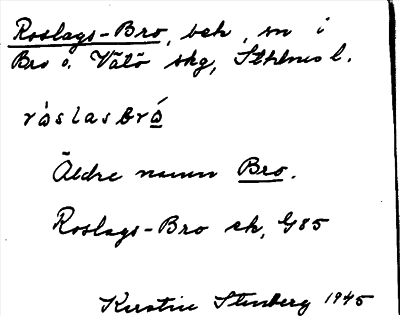 Roslags-Bro, beh, sn i
Bro o. Vätö skg, Sthlms l.
ròslasbró
Äldre namn Bro.
Roslags-Bro sk, G85
Kerstin Stenberg 1945